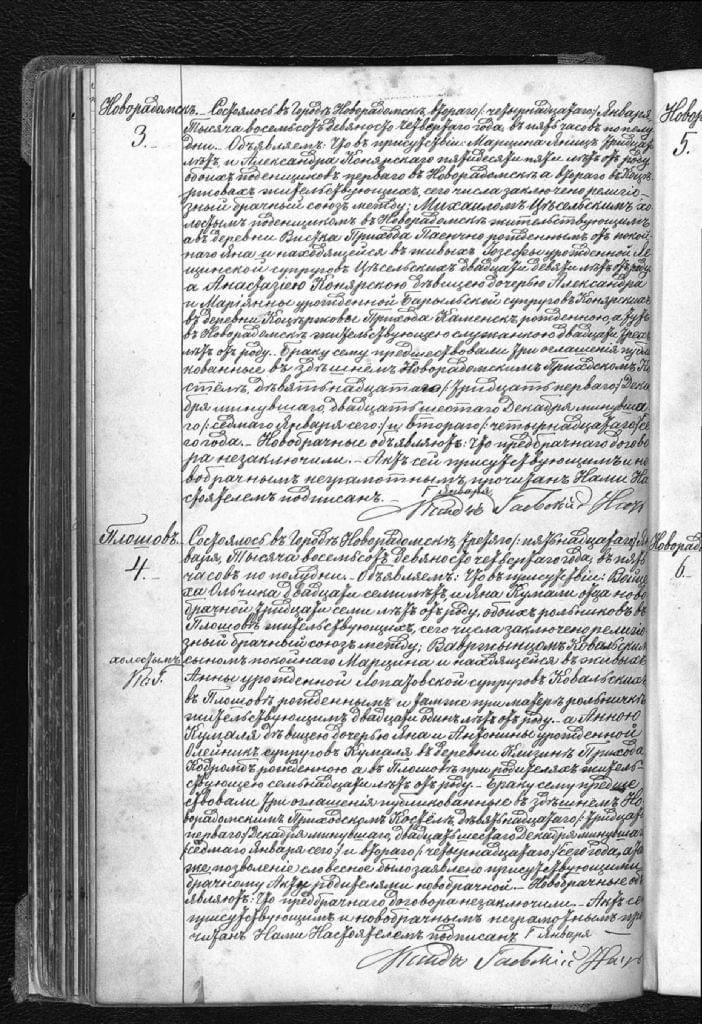 Новорадомскъ.
3.
Состоялось въ Городѣ Новорадомскѣ втораго /: четырнадцатаго :/ Января,
Тысяча восемьсотъ девяносто четвертаго года, въ пять часовъ по полу
дни. Объявляемъ: Что въ присутствіи: Марцина Яницъ тридцати
лѣтъ, и Александра Конярскаго пятидесяти пяти лѣтъ отъ роду
обоихъ поденщиковъ перваго въ Новорадомскѣ а втораго въ Коцѣ
ржовахъ жительствующихъ, сего числа заключено религіо
зный брачный союзъ между: Михаиломъ Цѣсельскимъ хо
лостымъ поденщикомъ въ Новорадомскѣ жительствующимъ
а въ деревни Вистка Прихода Паенчно рожденнымъ отъ покой
наго Яна и находящейся въ живыхъ Іозефы урожденной Ле
щинской супруговъ Цѣсельскихъ двадцати девяти лѣтъ отъ роду
а Анастазіею Конярскою дѣвицею дочерью Александра
и Маріянны урожденной Барыльской супруговъ Конярскихъ
въ деревни Коцѣржовы Прихода Каменскъ рожденною, а тутъ
въ Новорадомскѣ жительствующею служанкою двадцати трехъ
лѣтъ отъ роду. Браку сему предшествовали три оглашенія публи
кованные въ здѣшнемъ Новорадомскимъ Приходскомъ Ко
стелѣ, девятнадцатаго /: тридцать перваго :/ Дека
бря минувшаго, двадцать шестаго Декабря минувша
го /: седмаго Января сего :/ и втораго /: четырнадцатаго :/ се
го года. Новобрачные объявляютъ: Что предбрачнаго догово
ра незаключили. Актъ сей присутствующимъ и но
вобрачнымъ неграмотнымъ, прочитанъ Нами На
стоятелемъ подписанъ.
Января
Плошовъ.
4.
Состоялось въ Городѣ Новорадомскѣ третяго /: пятнадцатаго :/ Ян
варя, Тысяча восемьсотъ девяносто четвертаго года, въ пять
часовъ по полудни. Объявляемъ: Что въ присутствіи: Войце
ха Ольчика двадцати семи лѣтъ и Яна Кумаля отца ново
брачной тридцати семи лѣтъ отъ роду, обоихъ рольниковъ въ
Плошовѣ жительствующихъ, сего числа заключено религіо
зный брачный союзъ между: Вавржынцомъ Ковальскимъ
холостымъ
сыномъ покойнаго Марцина и находящейся въ живыхъ
Анны урожденной Лопатовской супруговъ Ковальскихъ
въ Плошовѣ рожденнымъ и тамже при матерѣ рольничкѣ
жительствующимъ двадцати одинъ лѣтъ отъ роду. а Анною
Кумаля дѣвицею дочерью Яна и Антонины урожденной
Олейникъ супруговъ Кумаля въ деревни Прихода
Кодромбъ рожденною а въ Плошовѣ при родителяхъ житель
ствующею семьнадцати лѣтъ отъ роду. Браку сему предше
ствовали три оглашенія публикованные въ здѣшнемъ Но
ворадомскимъ Приходскомъ Костелѣ, девятнадцатаго /: тридцать
перваго :/ Декабря минувшаго, двадцать шестаго Декабря минувшаго
/: седмаго Января сего :/ и втораго /: четырнадцатаго :/ сего года, а так
же позволеніе словесное было заявлено присутствующими
брачному Акту родителями новобрачной. Новобрачные объ
являютъ: Что предбрачнаго договора незаключили. Актъ сей
присутствующимъ и новобрачнымъ неграмотнымъ про
читанъ Нами Настоятелемъ подписанъ Января
5.
6.